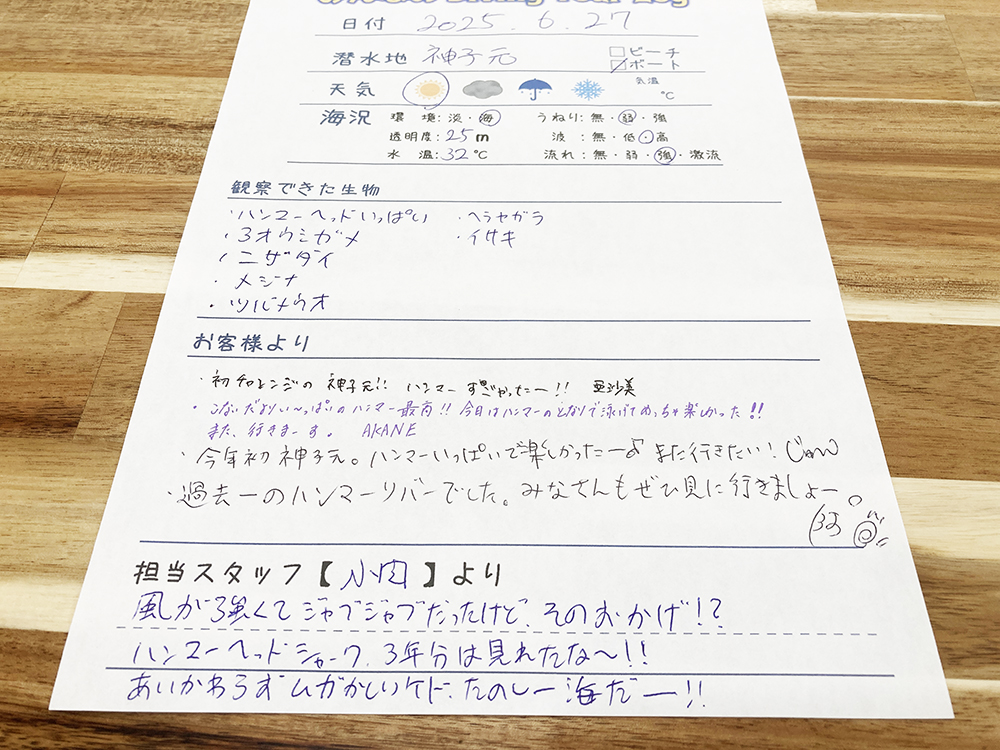 Diving Tour Log
日付 2025. 6. 27
潜水地 神子元 □ビーチ
☑ボート
天気 気温
℃
海況 環境:淡・海 うねり:無・弱・強
透明度:25m 波:無・低・高
水温:32℃ 流れ:無・弱・強・激流
観察できた生物
・ハンマーヘッドいっぱい ・ヘラヤガラ
・ヨオウシガメ ・イサキ
・ニザダイ
・メジナ
・ツバメウオ
お客様より
・初チャレンジの 神子元!! ハンマー すごかったー!! 亜沙美
・こないだよりい〜っぱいのハンマー最高!! 今日はハンマーのとなりで泳げてめっちゃ楽しかった!!
また、行きまーす。 AKANE
・今年初神子元。ハンマーいっぱいで楽しかったー♪ また行きたい!
・過去一のハンマーリバーでした。みなさんもぜひ見に行きましょー。
担当スタッフ【小肉】より
風が強くてジャブジャブだったけど、そのおかげ!?
ハンマーヘッドシャーク、3年分は見れたな〜!!
あいかわらずムズかしいケド、たのしー海だー!!